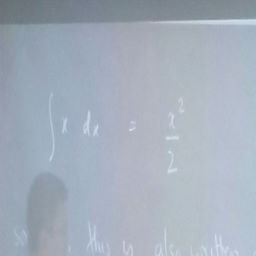 ∫ x dx = x²/2
so , this is also written